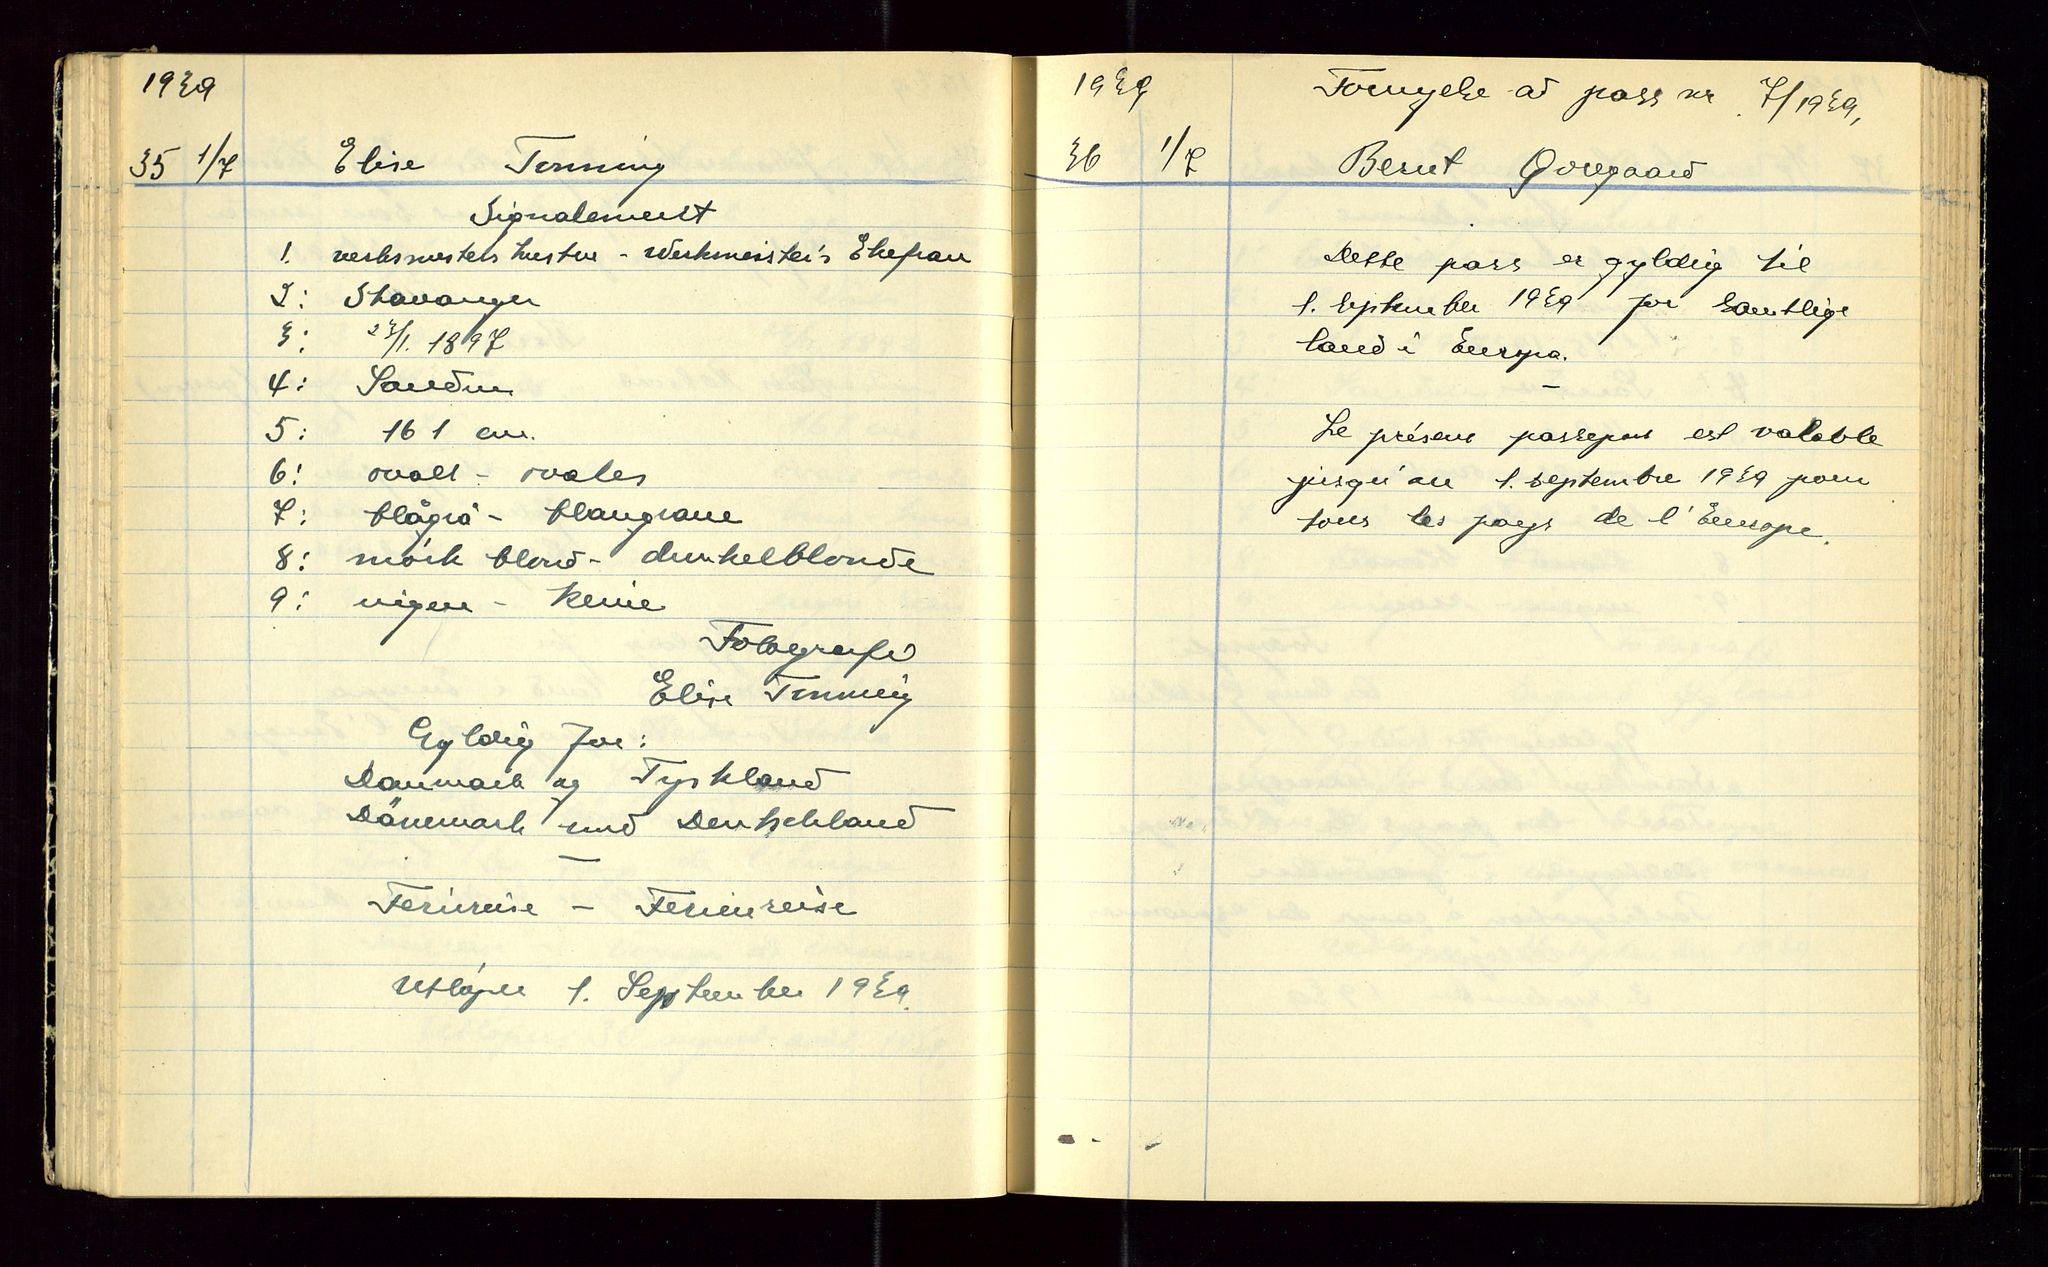 1939
35 1/7 Elise Tonning
Signalement
1. verksmesters hustru - Werkmeister's Ehefrau
2: Stavanger
3: 23/1. 1897
4: Sandnes
5: 161 cm.
6: ovalt - ovales
7: blågrå - blaugraue
8: mörk blond - dunkelblonde
9: ingen - keine
Fotografi
Elise Tonning
Gyldig for:
Danmark og Tyskland
Dänemark und Deutschland
—
Feriereise - Ferienreise
Utløper 1. September 1939.
1939 Fornyelse av pass nr 7/1939,
36 1/7 Bernt Øvregaard
Dette pass er gyldig til
1. september 1939 for samtlige
land i Europa.
—
Le présent passeport est valable
jusqu'au 1. septembre 1939 pour
tous les pays de l'Europe.